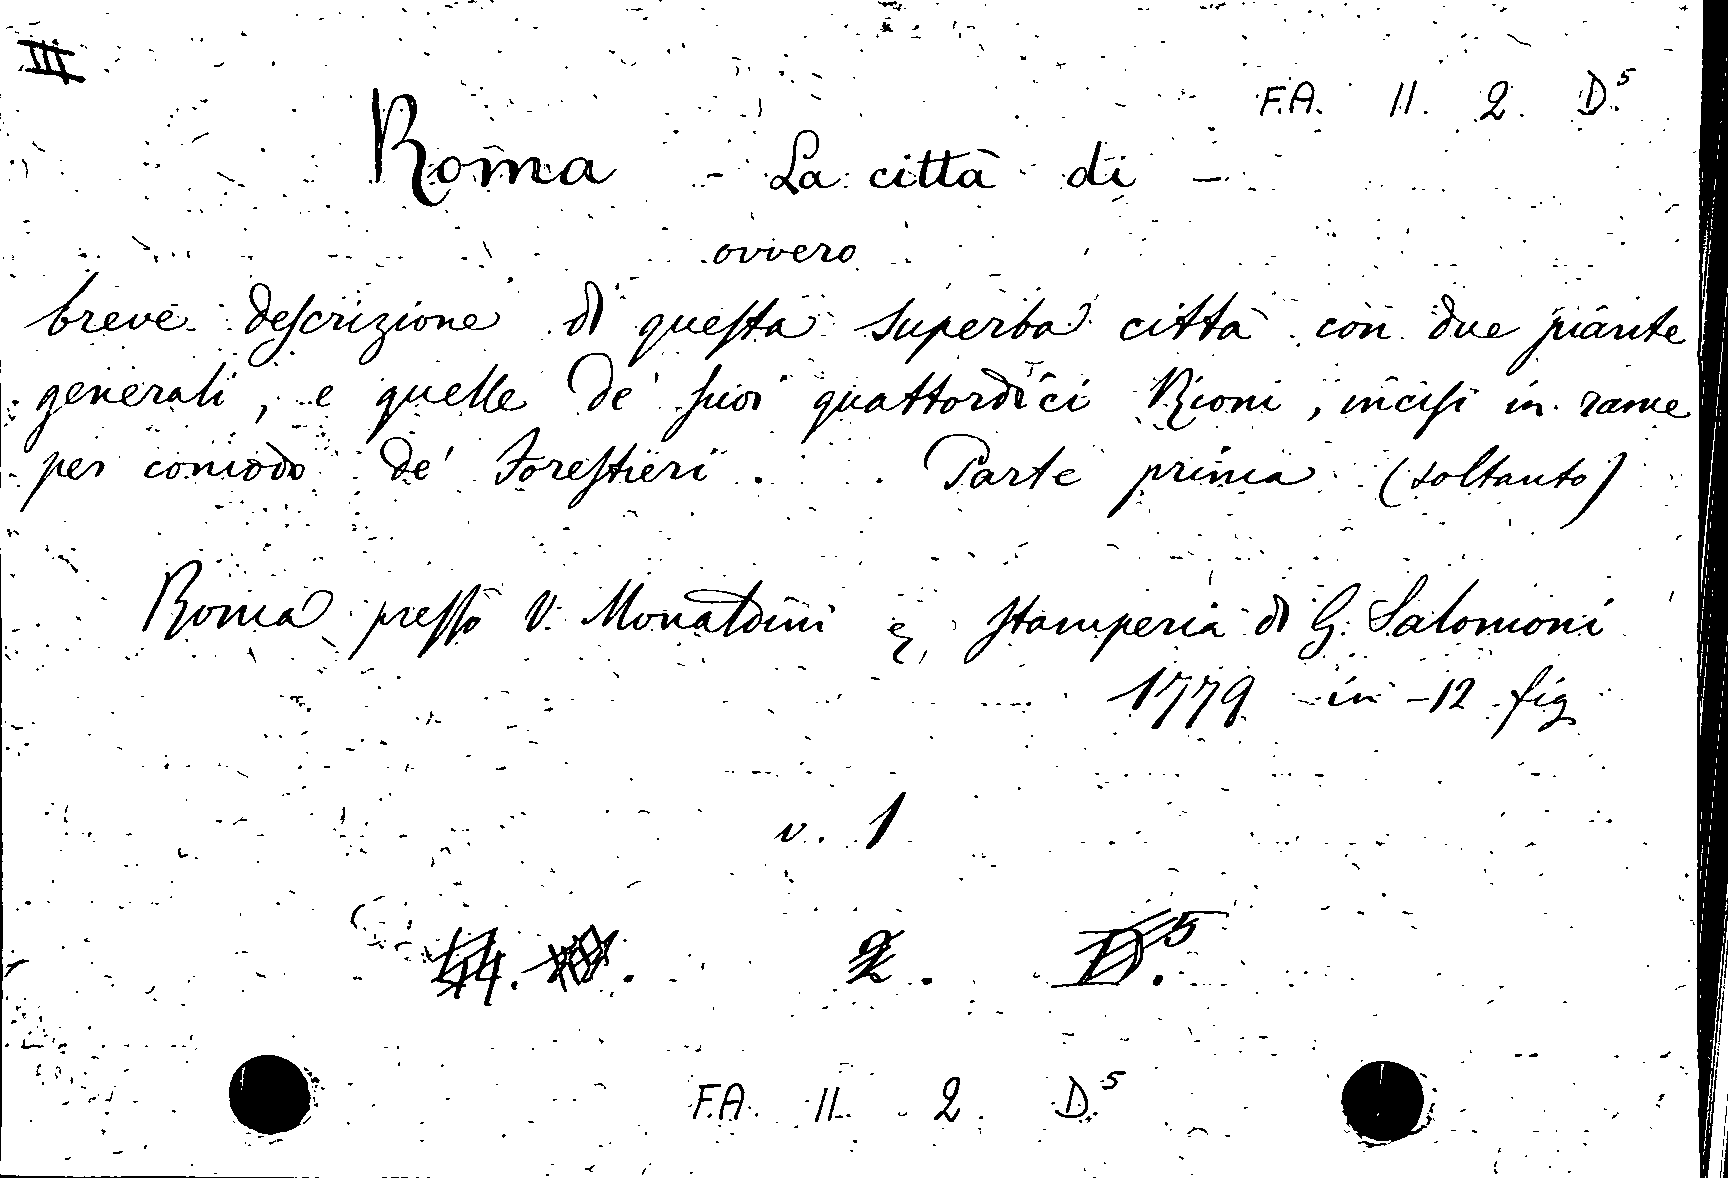 III
F.A. II. 2. D.5
Roma - La città di -
ovvero
breve descrizione di questa superba città con due piante
generali, e quelle de' suoi quattordici Rioni, incisi in rame
per comodo de' Forestieri. . Parte prima (soltanto)
Roma presso V. Monaldini e, stamperia di G. Salomoni
1779 in -12 fig
v. 1
2. D.5
F.A. II. 2. D.5